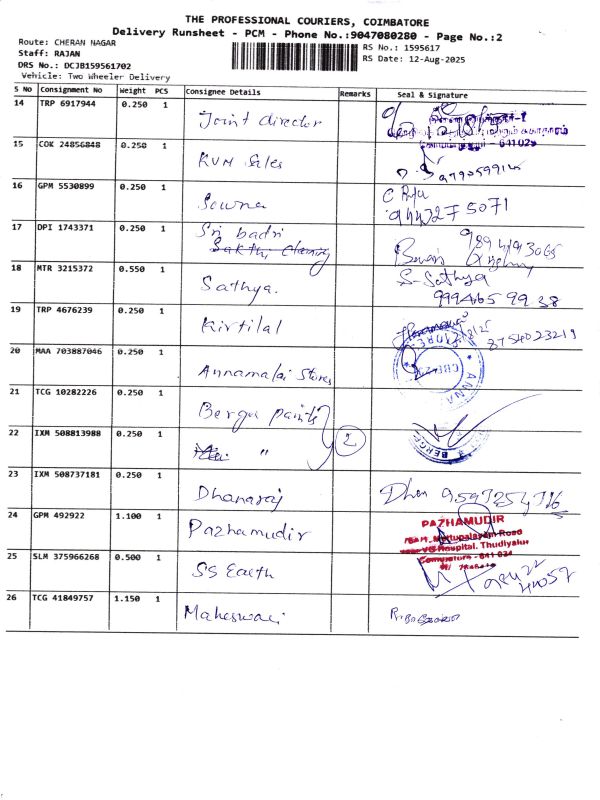 THE PROFESSIONAL COURIERS, COIMBATORE
Delivery Runsheet - PCM - Phone No.:9047080280 - Page No.:2
Route: CHERAN NAGAR
RS No.: 1595617
Staff: RAJAN
RS Date: 12-Aug-2025
DRS No.: DCJB159561702
Vehicle: Two Wheeler Delivery
S No Consignment No Weight PCS Consignee Details Remarks Seal & Signature
14 TRP 6917944 0.250 1 Joint director
15 COK 24856848 0.250 1 KVM Sales
16 GPM 5530899 0.250 1 Sowrna
944275071
17 DPI 1743371 0.250 1 Sri badri
Sakthi
18 MTR 3215372 0.550 1 Sathya. S-Sathya
9994659938
19 TRP 4676239 0.250 1 Kirtilal 8754023219
20 MAA 703887046 0.250 1 Annamalai Stores
21 TCG 10282226 0.250 1 Berger paints
22 IXM 508813988 0.250 1 " 2
23 IXM 508737181 0.250 1 Dhanaraj
24 GPM 492922 1.100 1 Pazhamudir PAZHAMUDIR
Mettupalayam Road
Hospital, Thudiyalur
Coimbatore - 641 034
25 SLM 375966268 0.500 1 SS Earth
26 TCG 41849757 1.150 1 Maheswari